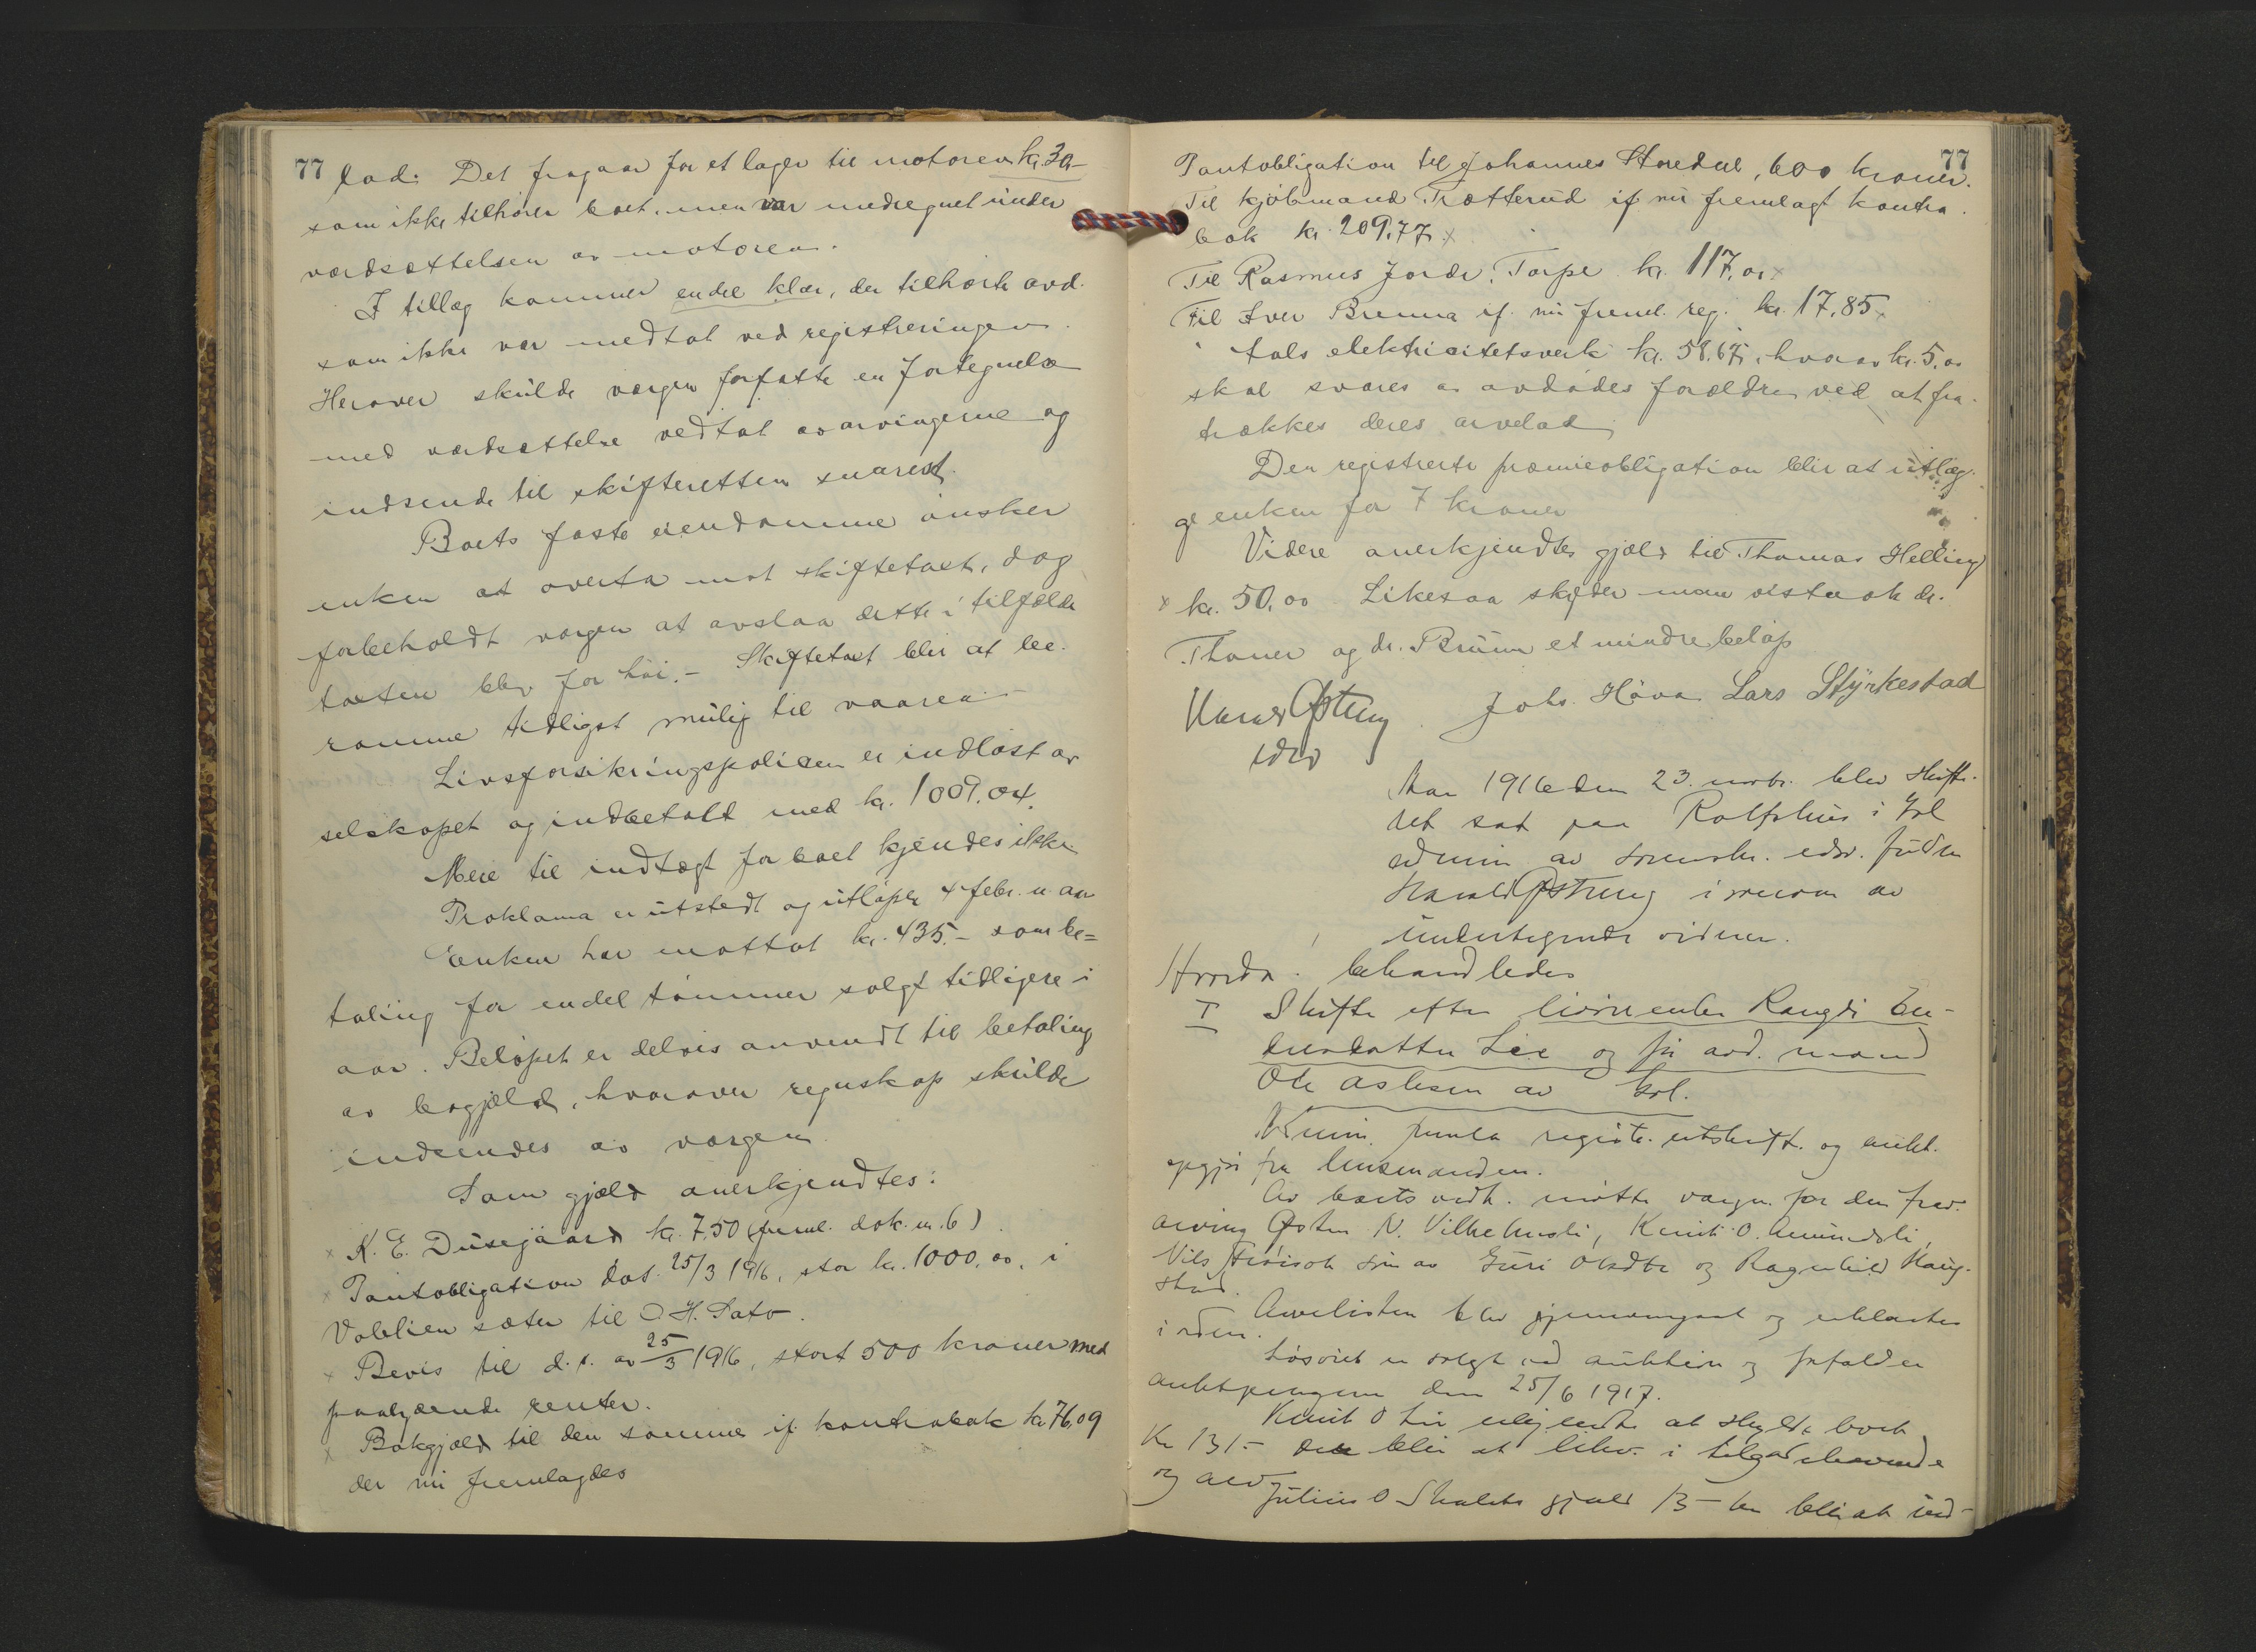 77 lad. Det fragaar for et lager til motoren kr. 30.-
som ikke tilhører boet, men var medregnet under
værdsættelsen av motoren.
I tillæg kommer endel klær, der tilhørte avd.
som ikke var medtat ved registreringen.
Herover skulde vergen forfatte en fortegnelse
med værdsættelse vedtat av arvingerne og
indsende til skifteretten snarest.
Boets faste eiendomme ønsker
enken at overta mot skiftetakst, dog
forbeholdt vergen at avslaa dette i tilfælde
taksten blev for høi. - Skiftetakst blir at be-
ramme tidligst mulig til vaaren.
Livsforsikringspolicen er indløst av
selskapet og indbetalt med kr. 1009.04.
Mere til indtægt for boet kjendes ikke.
Proklama er utstedt og utløper 4 febr. n. aar
Enken har mottat kr. 435.- som be=
taling for endel tømmer solgt tidligere i
aar. Beløpet er delvis anvendt til betaling
av bogjæld, hvorover regnskap skulde
indsendes av vergen.
Som gjæld anerkjendtes:
x K. E. Dusegaard kr. 7,50 (freml. dok. nr. 6)
x Pantobligation dat. 25/3 1916, stor kr. 1000,00, i
Voldlien sæter til O. H. Sato.
x Bevis til d. s. av 25/3 1916, stort 500 kroner med
paaløpende renter.
x Bokgjæld til den samme if. kontrabok kr. 76.09
der nu fremlagdes
77
Pantobligation til Johannes Storedal, 600 kroner.
Til kjøbmand Trætterud if. nu fremlagt kontra-
bok kr. 209.77. x
Til Rasmus Jorde, Torpe kr. 117,00 x
Til Iver Brenna if. nu freml. reg. kr. 17,85 x
Aals elektricitetsverk kr. 58.67, hvorav kr. 5,00
skal svares av avdødes forældre ved at fra-
trækkes deres arvelod.
Den registrerte præmieobligation blir at utlæg-
ge enken for 7 kroner
Videre anerkjendtes gjæld til Thomas Helling
x kr. 50,00 Likesaa skylder man vistnok dr.
Thoner og dr. Bruun et mindre beløp
Harald Østeng Johs. Høva Lars Styrkestad
edsv
Aar 1916 den 23. novbr. blev skifte-
ret sat paa Rolfshus i Gol
admin. av sorenskr. edsv. fuldm
Harald Østeng i nærvær av
undertegnede vidner.
Hvorda behandledes
I Skifte efter livørenke Rangdi En-
dersdatter Lie og før avd. mand
Ole Aslesen av Gol.
Admin. fremla registr. utskrift og aukt.
opgjør fra lensmanden.
Av boets vedk. møtte vergen for den frav.
arving Østen N. Vilhelmsli, Knut O. Amundsli,
Nils søn av Guri Olsdtr og Ragnhild Haug-
stad.
Arvelisten blev gjennemgaat og erklærtes
i orden.
Løsøret er solgt ved auktion og forfalder
auktpengene den 25/6 1917.
Knut O Lie at skylde boet
Kr 131.- der blir at i tilgodehavende
og arv
Julius O gjæld 13 - kr blir at ind-